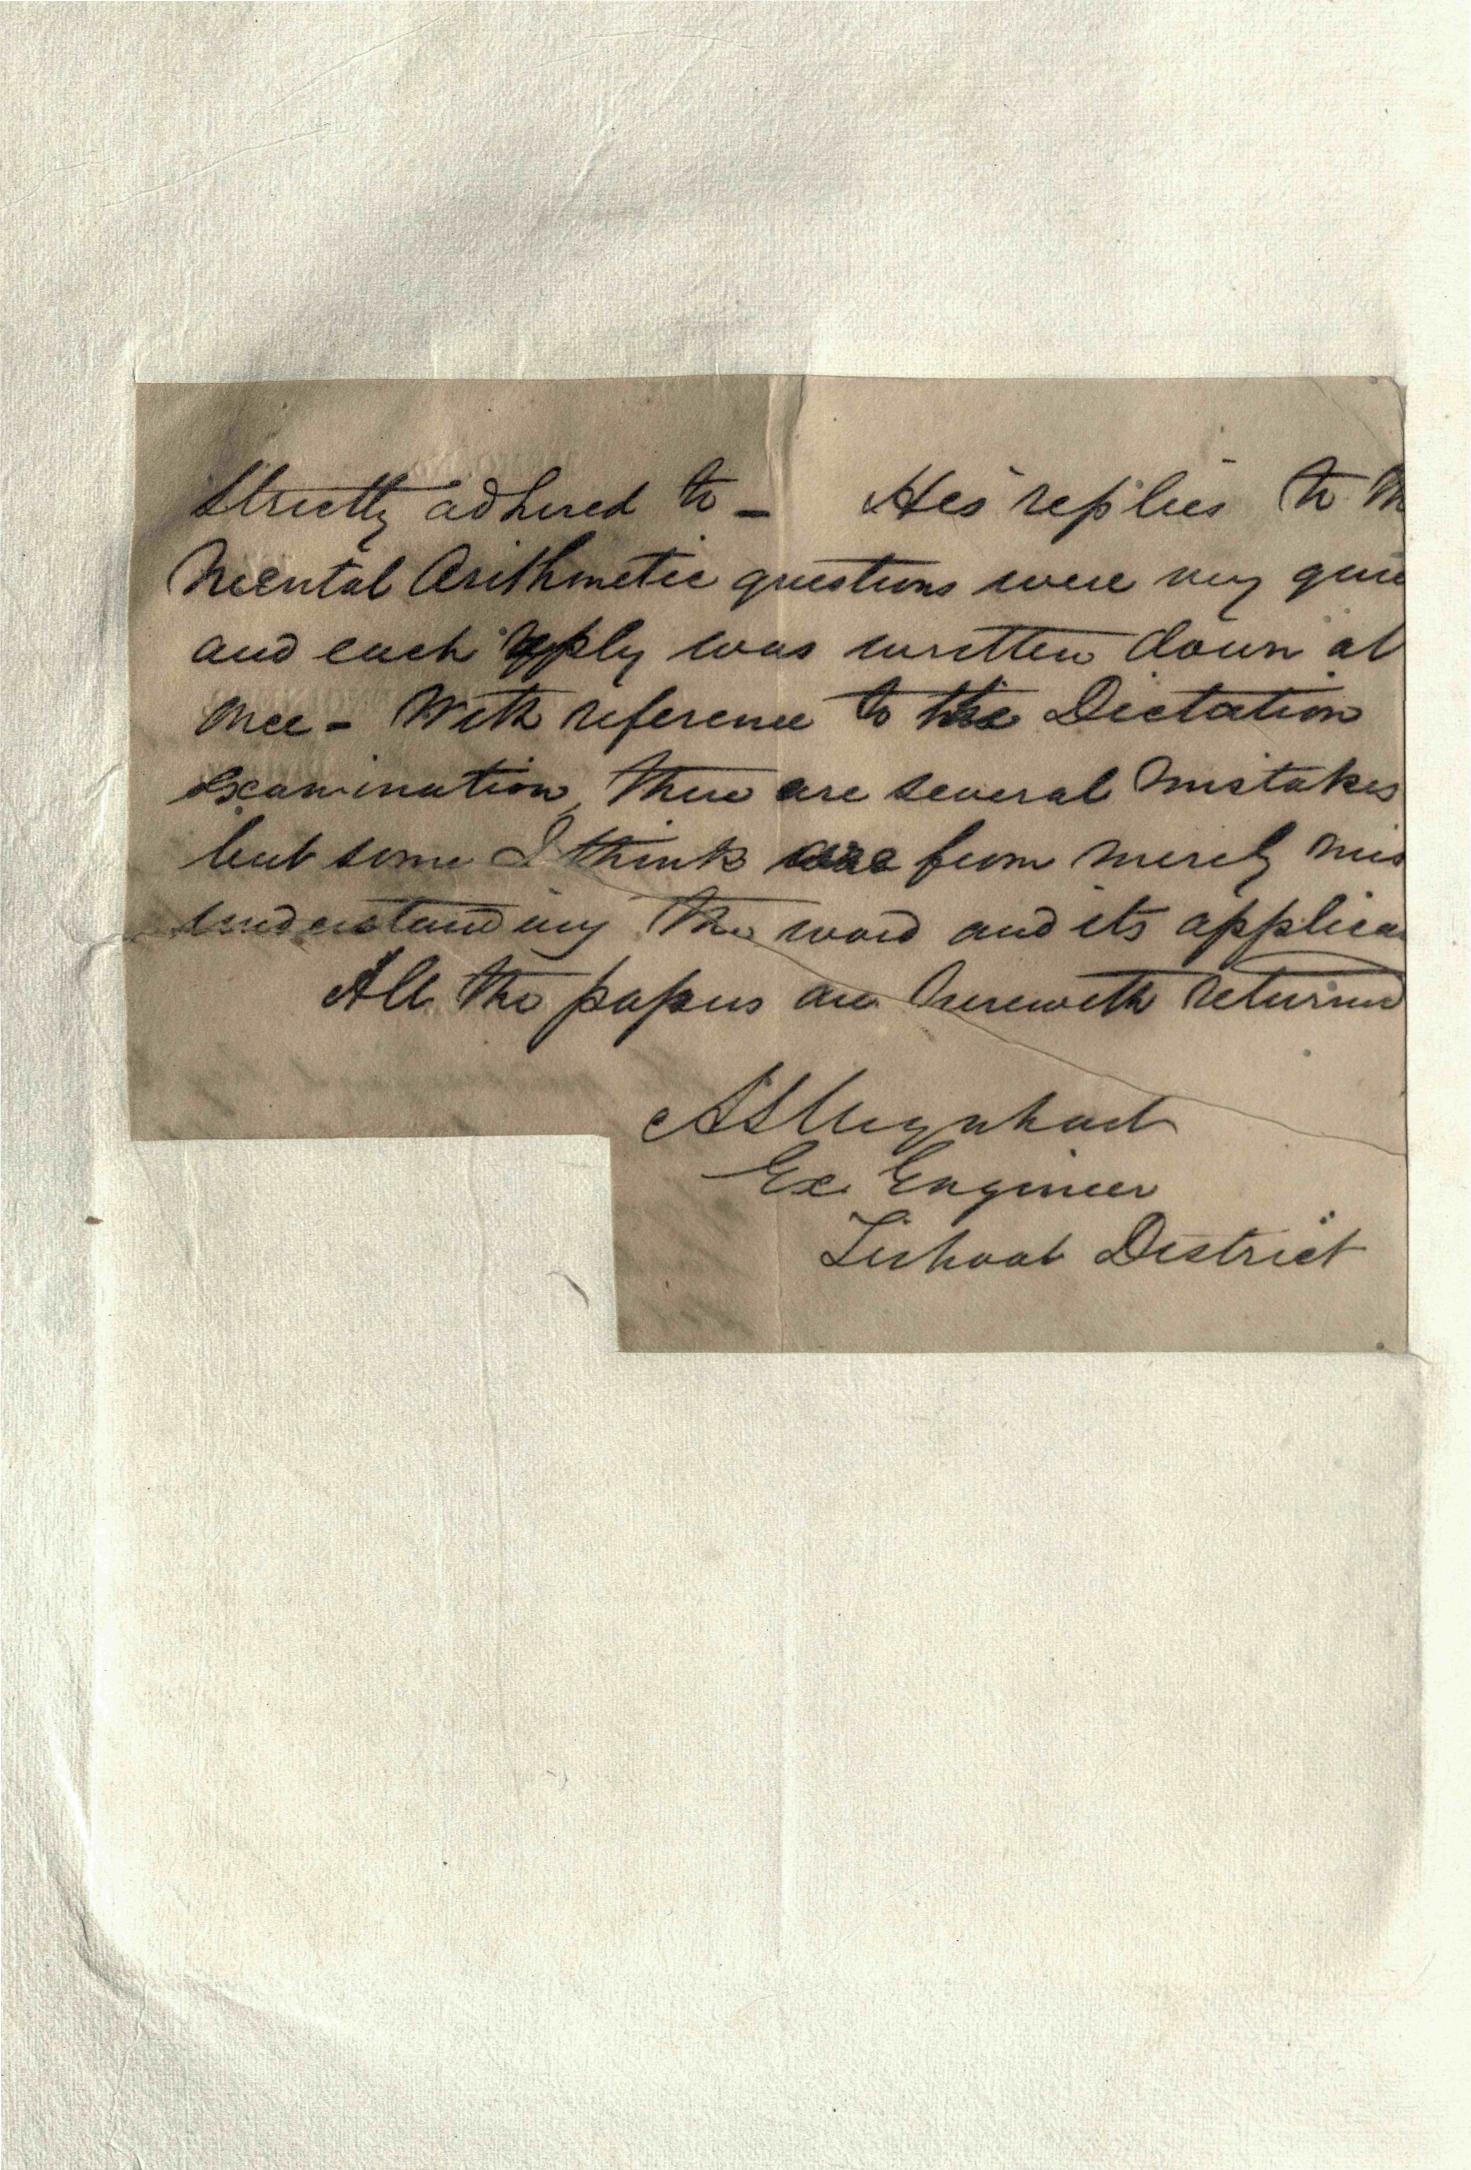 Strictly adhered to - His replies to th
Mental Arithmetic questions were very quic
and each reply was written down at
once - With reference to the Dictation
examination, there are several mistakes
but some I think are from merely mis
understanding the word and its applica
All the papers are herewith returned
Ex. Engineer
District